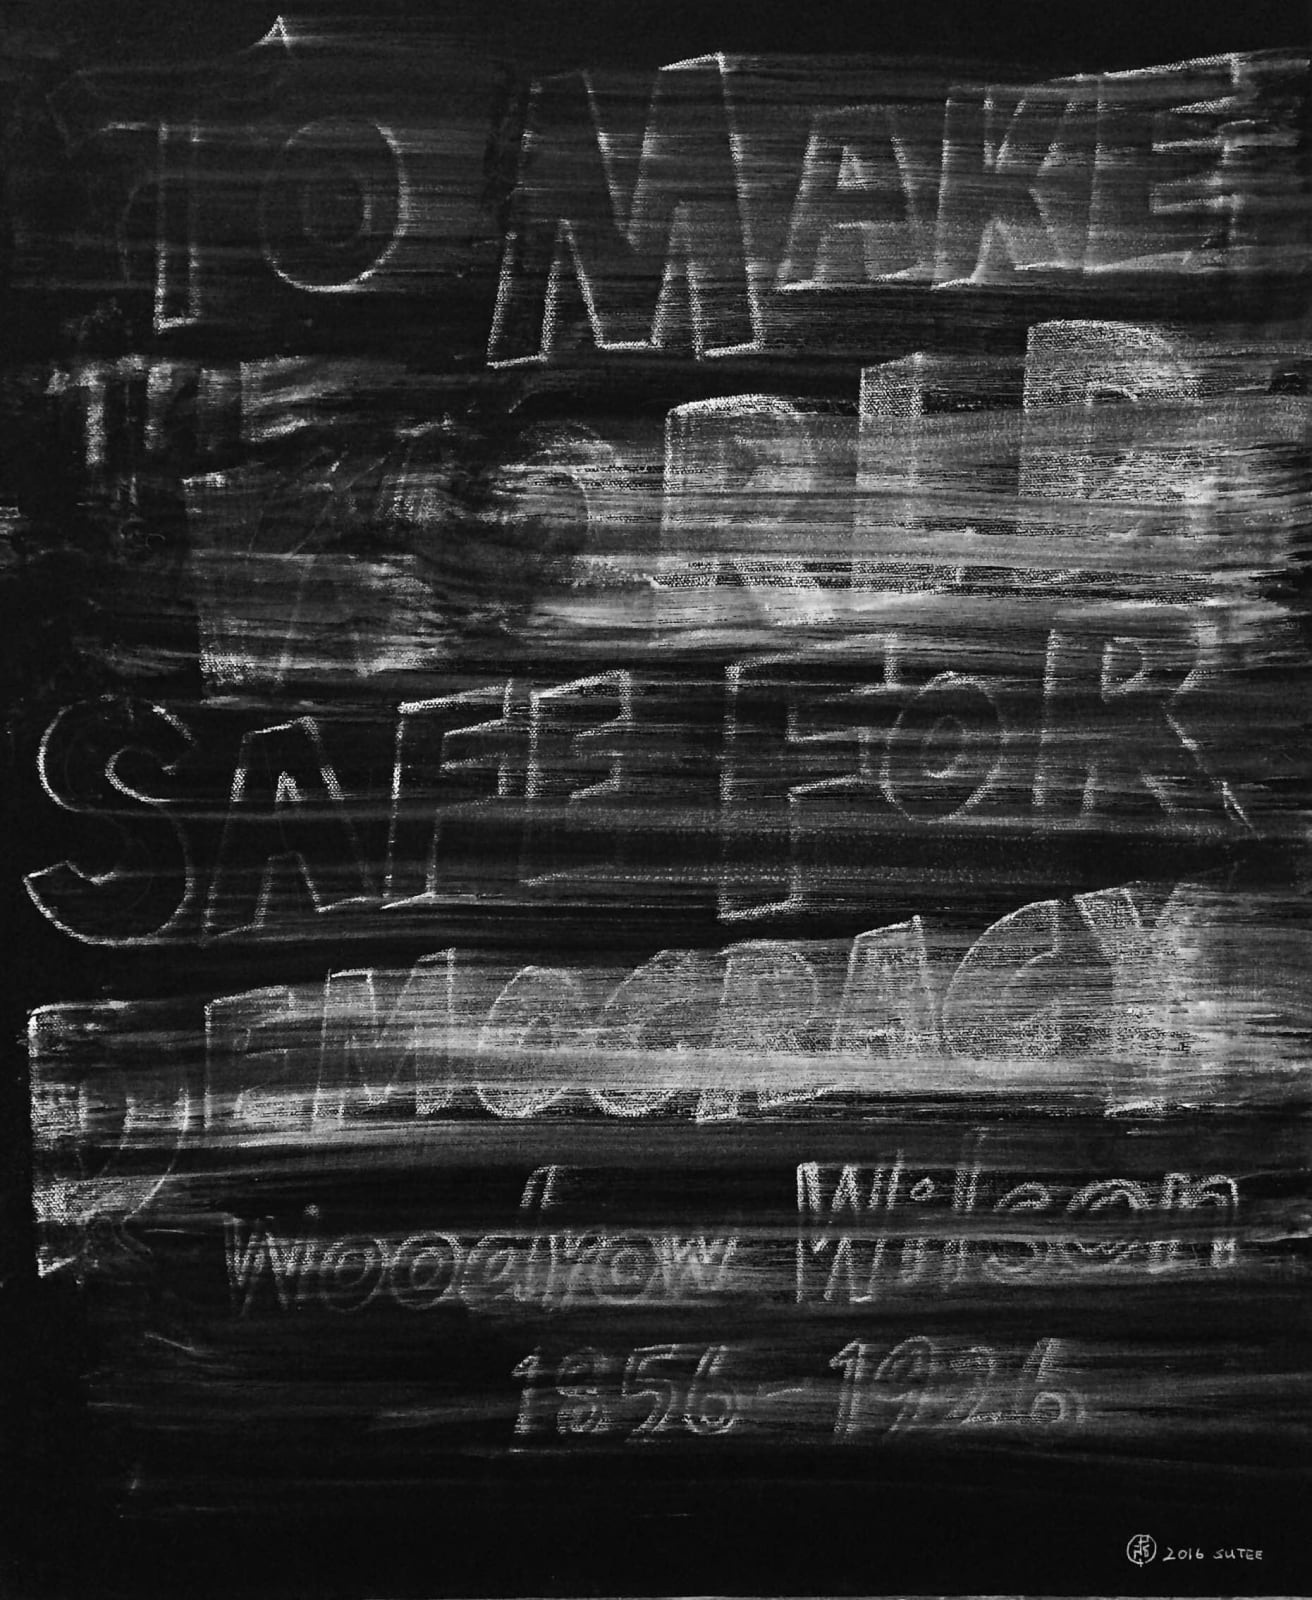 TO MAKE
THE
WORLD
SAFE FOR
DEMOCRACY
Woodrow Wilson
1856-1926
2016 SUTEE